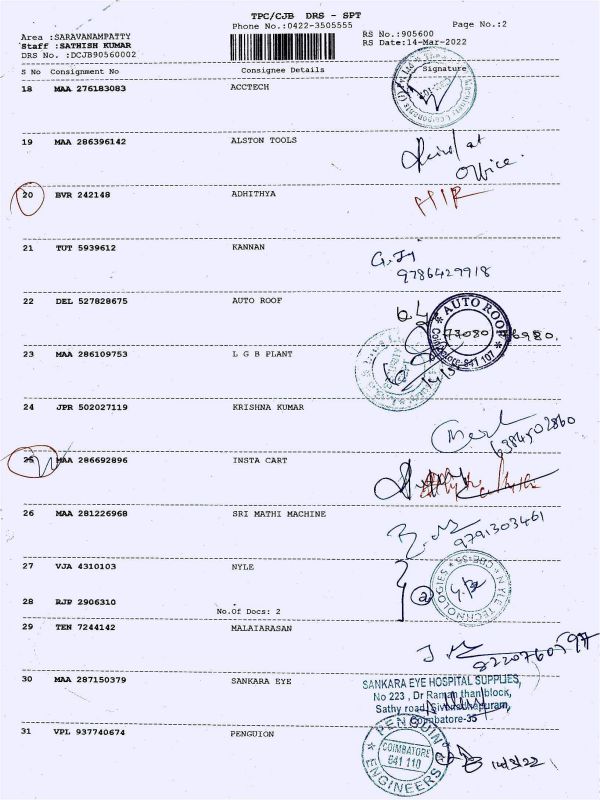 TPC/CJB DRS - SPT
Phone No.:0422-3505555
Page No.:2
Area :SARAVANAMPATTY
Staff :SATHISH KUMAR
DRS No. :DCJB90560002
RS No.:905600
RS Date:14-Mar-2022
S No Consignment No Consignee Details Signature
18 MAA 276183083 ACCTECH
19 MAA 286396142 ALSTON TOOLS
at
office.
20 BVR 242148 ADHITHYA
21 TUT 5939612 KANNAN
9786429918
22 DEL 527828675 AUTO ROOF
AUTO ROOF
Coimbatore 641 107
23 MAA 286109753 L G B PLANT
24 JPR 502027119 KRISHNA KUMAR
6384502860
25 MAA 286692896 INSTA CART
26 MAA 281226968 SRI MATHI MACHINE
9791303461
27 VJA 4310103 NYLE
NYLE TECHNOLOGIES
CBE-35
28 RJP 2906310
No.Of Docs: 2
29 TEN 7244142 MALAIARASAN
30 MAA 287150379 SANKARA EYE
SANKARA EYE HOSPITAL SUPPLIES,
No 223 , Dr Ramanathan block,
Sathy road, Sivanandapuram,
Coimbatore-35
31 VPL 937740674 PENGUION
PENGUIN ENGINEERS
COIMBATORE
641 110
14/3/22